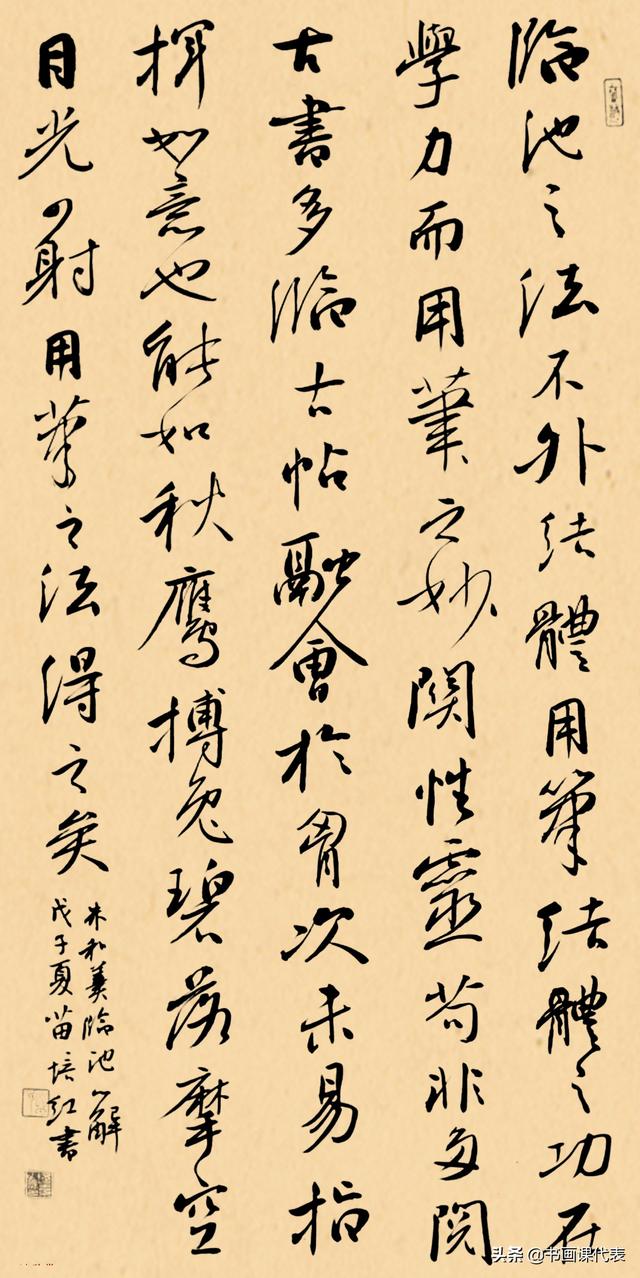 臨池之法不外結體用筆結體之功在
學力而用筆之妙關性靈苟非多閱
古書多臨古帖融會於胷次未易指
揮如意也能如秋鷹搏兔碧落摩空
目光四射用筆之法得之矣
朱和羹臨池心解
戊子夏苗培紅書
头条 @书画课代表